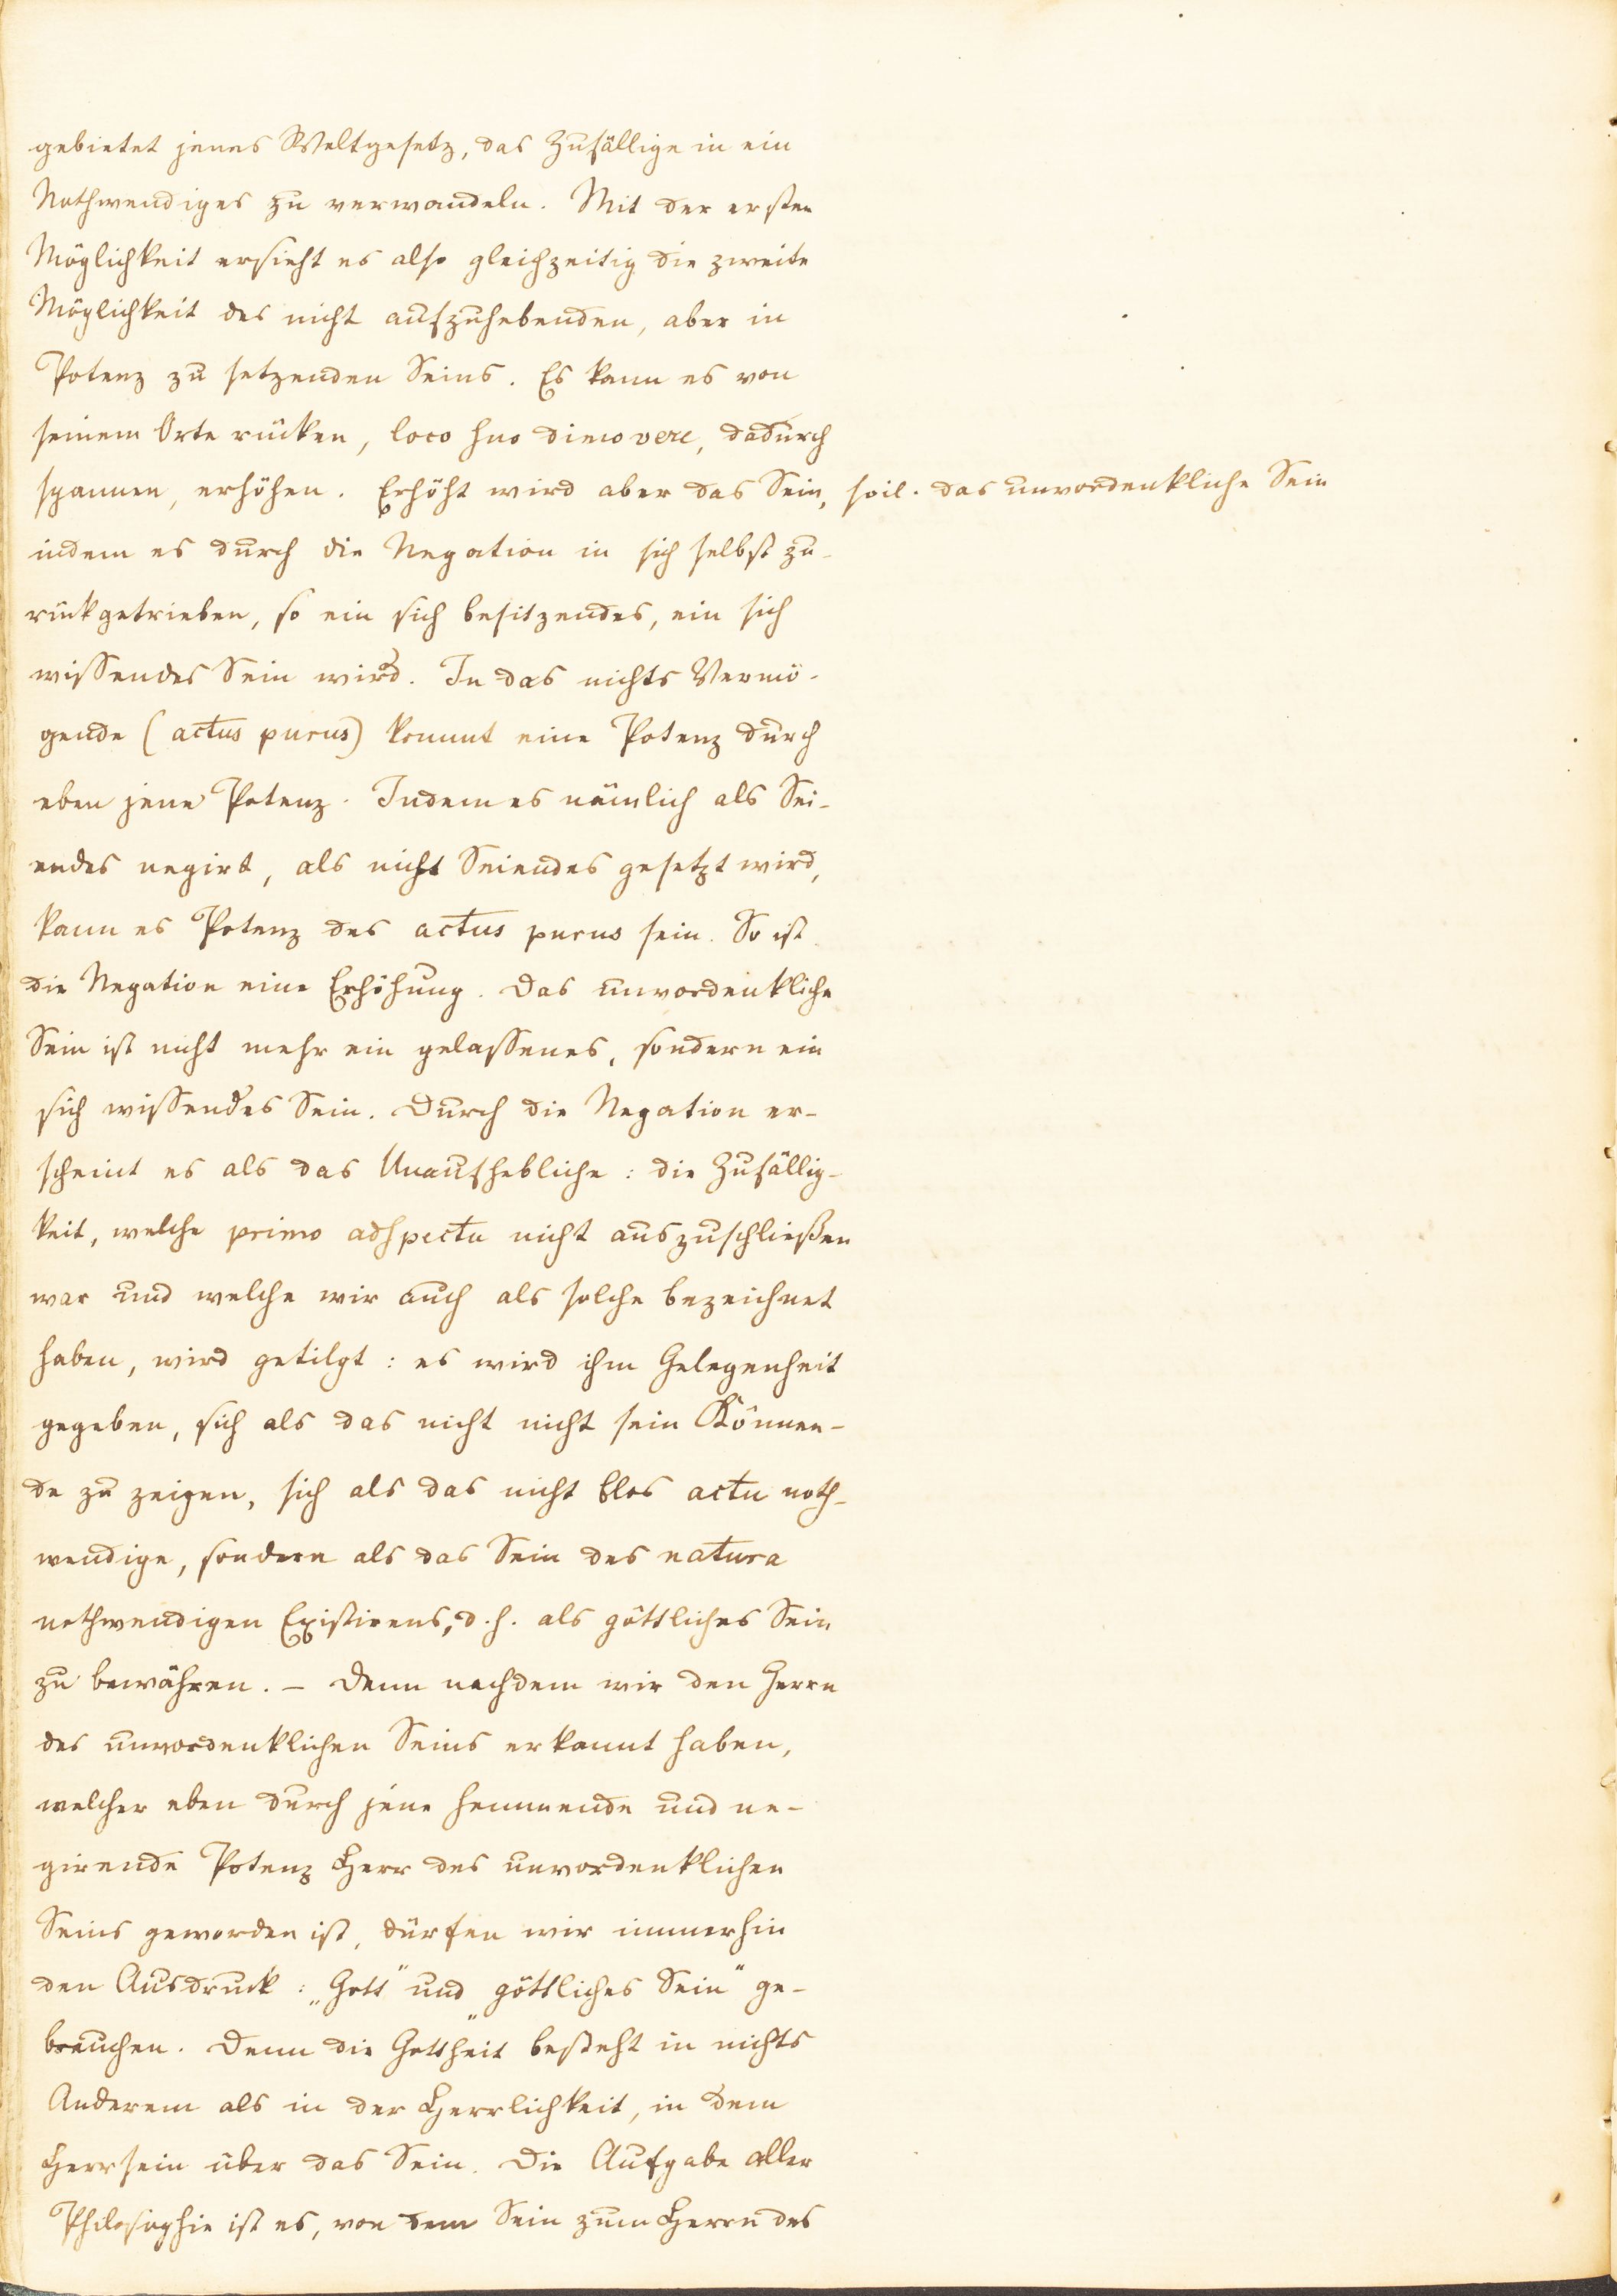 gebietet jenes Weltgesetz, das Zufällige in ein
Nothwendiges zu verwandeln. Mit der ersten
Möglichkeit ersieht es also gleichzeitig die zweite
Möglichkeit des nicht aufzuhebenden, aber in
Potenz zu setzenden Seins. Es kann es von
seinem Orte rücken, loco suo dimovere, dadurch
spannen, erhöhen. Erhöht wird aber das Sein, scil. das unvordenkliche Sein
indem es durch die Negation in sich selbst zu-
rückgetrieben, so ein sich besitzendes, ein sich
wissendes Sein wird. In das nichts Vermö-
gende (actus purus) kommt eine Potenz durch
eben jene Potenz. Indem es nämlich als Sei-
endes negirt, als nicht Seiendes gesetzt wird,
kann es Potenz des actus purus sein. So ist
die Negation eine Erhöhung. Das unvordenkliche
Sein ist nicht mehr ein gelassenes, sondern ein
sich wissendes Sein. Durch die Negation er-
scheint es als das Unaufhebliche: die Zufällig-
keit, welche primo adspectu nicht auszuschließen
war und welche wir auch als solche bezeichnet
haben, wird getilgt: es wird ihm Gelegenheit
gegeben, sich als das nicht nicht sein Können-
de zu zeigen, sich als das nicht blos actu noth-
wendige, sondern als das Sein des natura
nothwendigen Existirens, d. h. als göttliches Sein
zu bewähren. – Denn nachdem wir den Herrn
des unvordenklichen Seins erkannt haben,
welcher eben durch jene hemmende und ne-
girende Potenz Herr des unvordenklichen
Seins geworden ist, dürfen wir immerhin
den Ausdruck: „Gott" und „göttliches Sein" ge-
brauchen. Denn die Gottheit besteht in nichts
Anderem als in der Herrlichkeit, in dem
Herrsein über das Sein. Die Aufgabe aller
Philosophie ist es, von dem Sein zum Herrn des